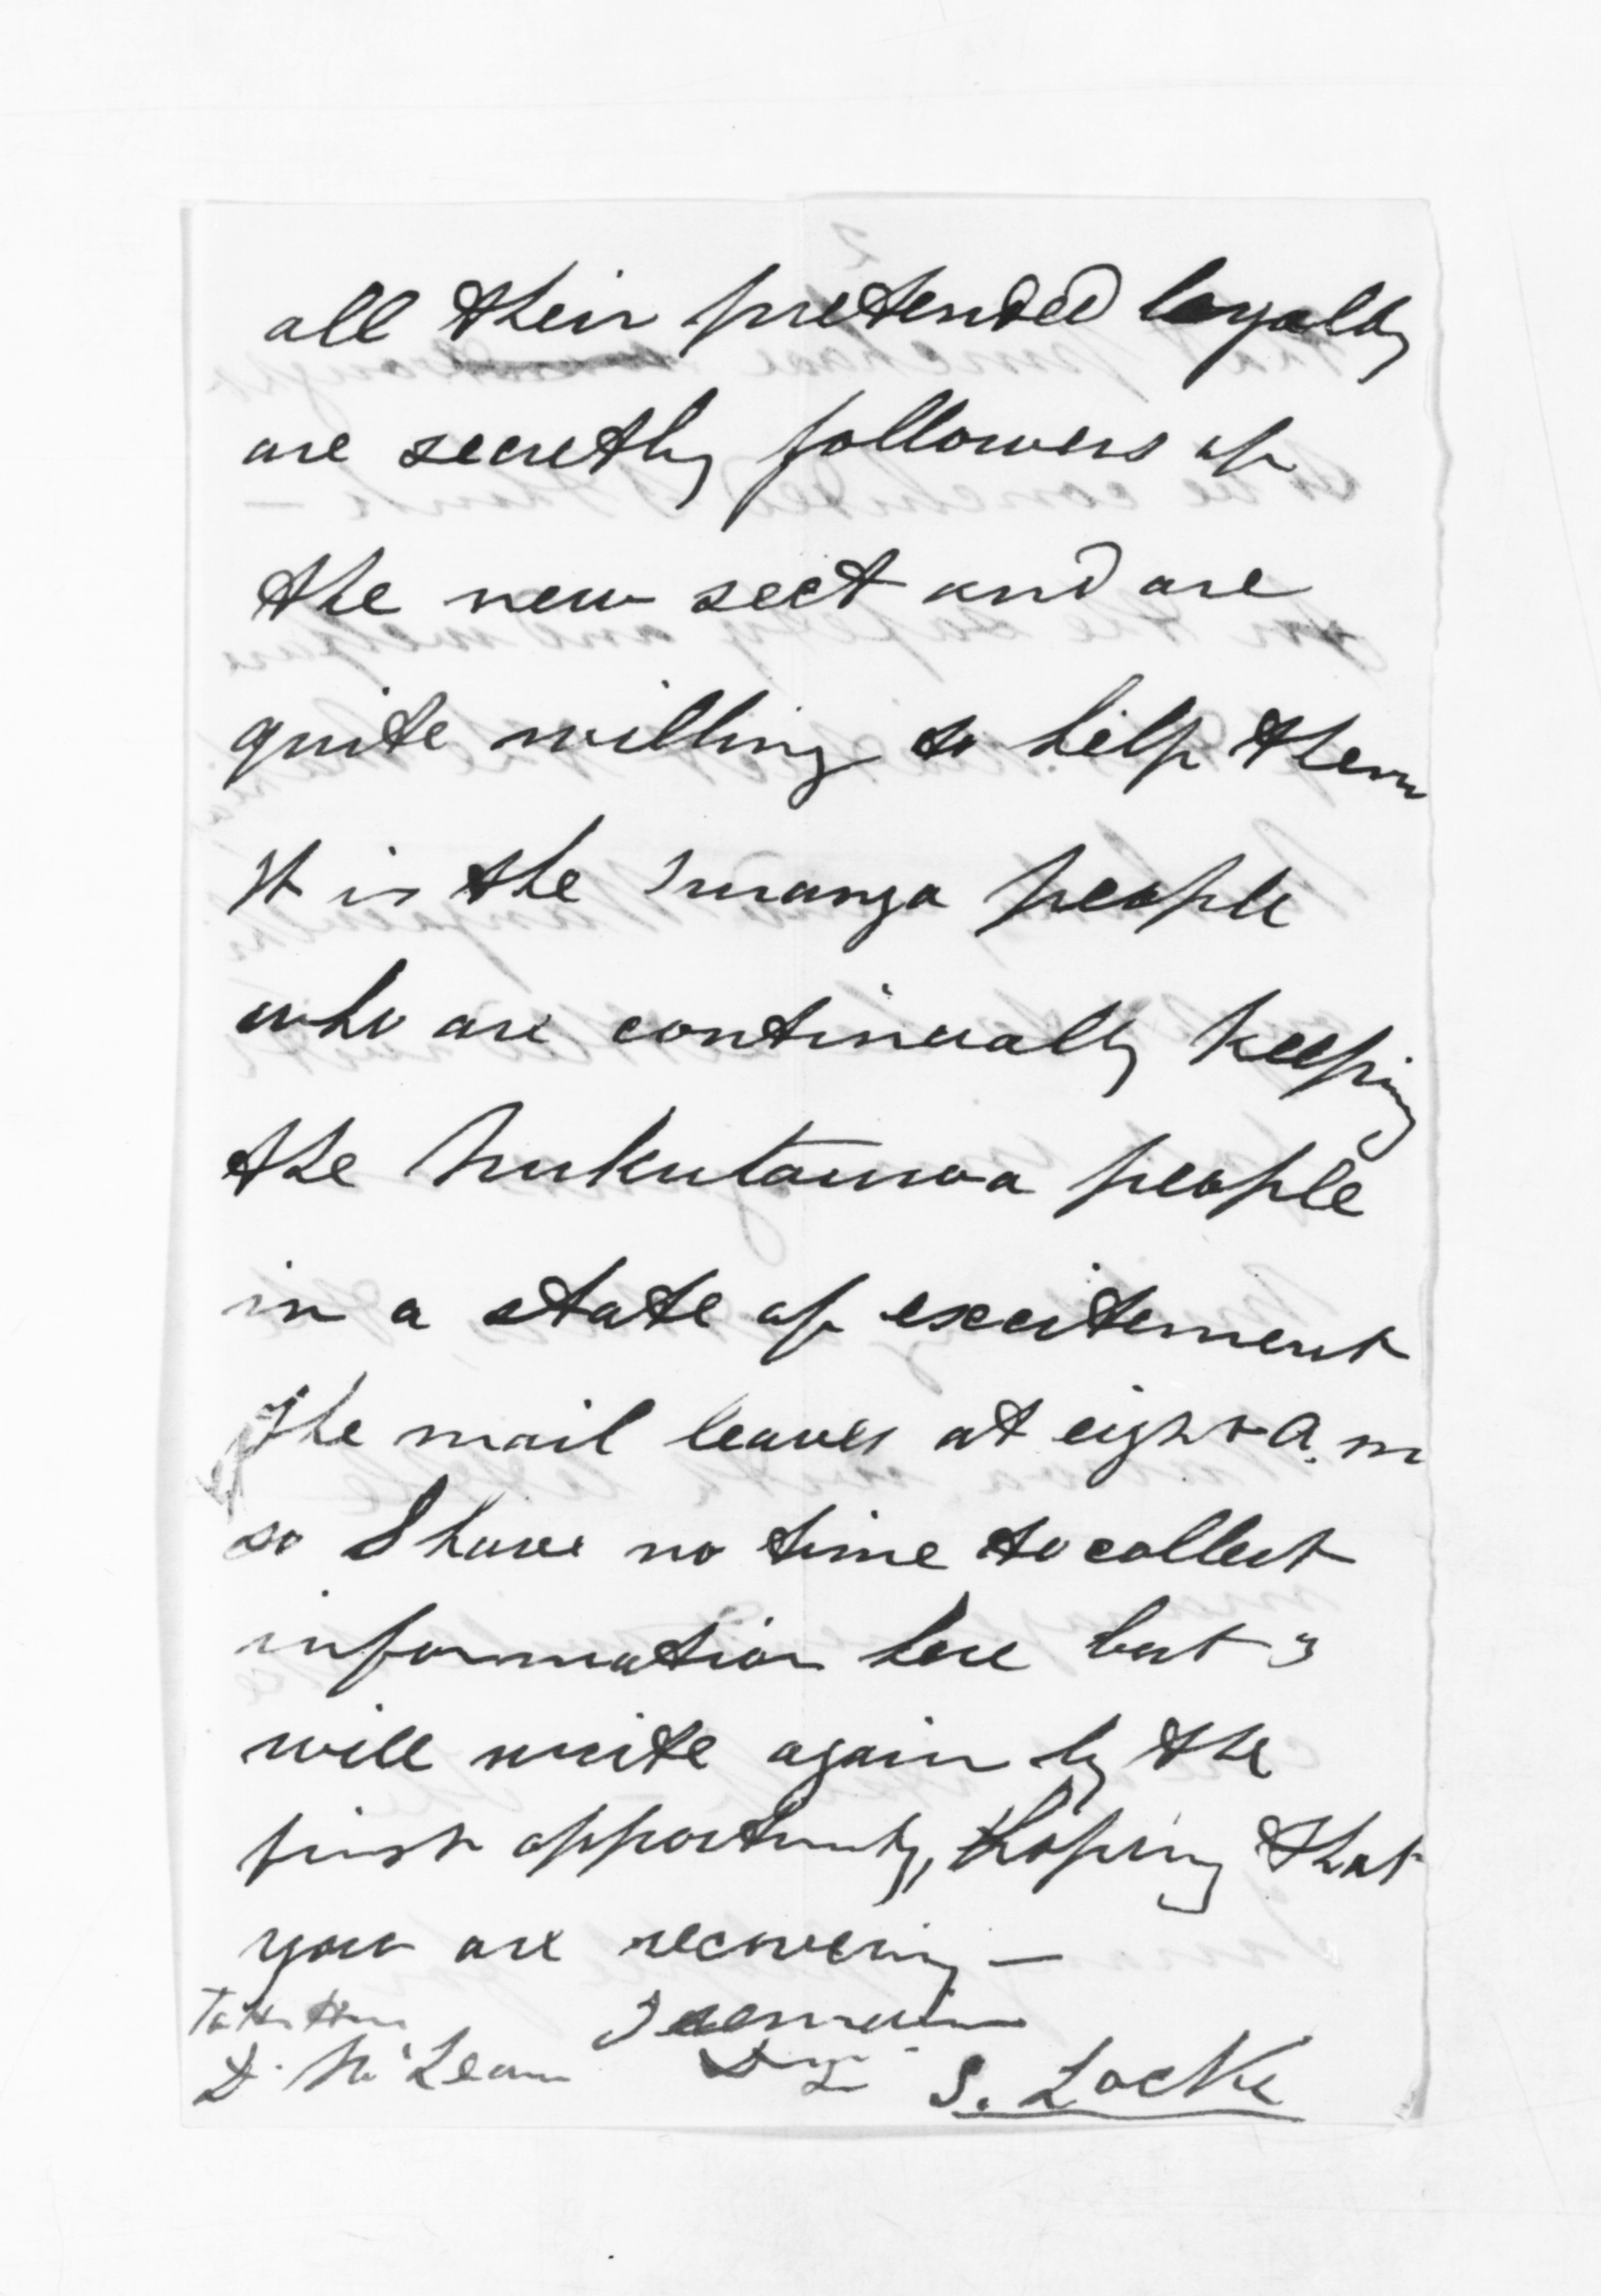 all their pretended loyalty
are secretly followers of
the new sect and are
quite willing to help them
It is the Turanga people
who are continually keeping
the Nukutaurua people
in a state of excitement
The mail leaves at eight a.m
so I have no time to collect
information here but I
will write again by the
first opportunity, hoping that
you are recovering —
I remain
D. McLean
S. Locke